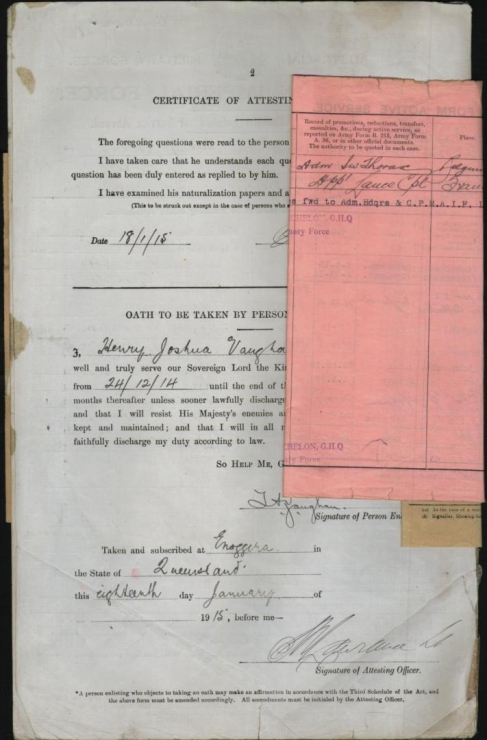 2
CERTIFICATE OF ATTESTIN
The foregoing questions were read to the person
I have taken care that he understands each que
question has been duly entered as replied to by him.
I have examined his naturalization papers and a
(This to be struck out except in the case of persons who
Date 18/1/15
OATH TO BE TAKEN BY PERSON
3, Henry Joshua Vaugha
well and truly serve our Sovereign Lord the Kin
from 24/12/14 until the end of t
months thereafter unless sooner lawfully discharge
and that I will resist His Majesty's enemies a
kept and maintained; and that I will in all m
faithfully discharge my duty according to law.
SO HELP ME, G
Vaughan.
Signature of Person En
Taken and subscribed at Enoggera in
the State of Queensland.
this eighteenth day January of
1915, before me—
Signature of Attesting Officer.
*A person enlisting who objects to taking an oath may make an affirmation in accordance with the Third Schedule of the Act, and
the above form must be amended accordingly. All amendments must be initialed by the Attesting Officer.
Record of promotions, reductions, transfers,
casualties, &c., during active service, as
reported on Army Form B. 213, Army Form
A. 36, or in other official documents.
The authority to be quoted in each case.
Place.
Adm
App Lance Cpl
fwd to Adm.Hdqrs &
G.H.Q
Force
G.H.Q
Force